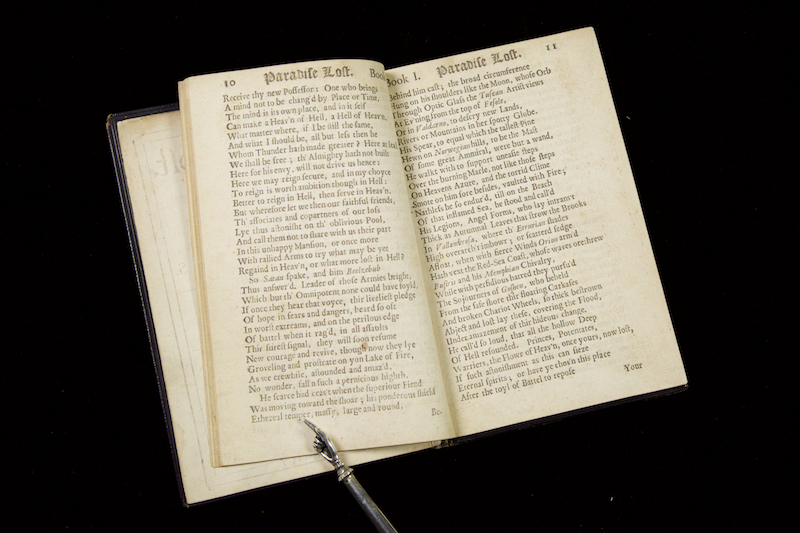 10 Paradiſe Loſt. Book
Receive thy new Poſſeſſor: One who brings
A mind not to be chang'd by Place or Time.
The mind is its own place, and in it ſelf
Can make a Heav'n of Hell, a Hell of Heav'n.
What matter where, if I be ſtill the ſame,
And what I ſhould be, all but leſs then he
Whom Thunder hath made greater? Here at leaſt
We ſhall be free; th' Almighty hath not built
Here for his envy, will not drive us hence:
Here we may reign ſecure, and in my choyce
To reign is worth ambition though in Hell:
Better to reign in Hell, then ſerve in Heav'n.
But wherefore let we then our faithful friends,
Th' aſſociates and copartners of our loſs
Lye thus aſtoniſht on th' oblivious Pool,
And call them not to ſhare with us their part
In this unhappy Manſion, or once more
With rallied Arms to try what may be yet
Regaind in Heav'n, or what more loſt in Hell?
So Satan ſpake, and him Beelzebub
Thus anſwer'd. Leader of thoſe Armies bright,
Which but th' Omnipotent none could have foyld,
If once they hear that voyce, thir livelieſt pledge
Of hope in fears and dangers, heard ſo oft
In worſt extreams, and on the perilous edge
Of battel when it rag'd, in all aſſaults
Thir ſureſt ſignal, they will ſoon reſume
New courage and revive, though now they lye
Groveling and proſtrate on yon Lake of Fire,
As we erewhile, aſtounded and amaz'd,
No wonder, fall'n ſuch a pernicious highth.
He ſcarce had ceas't when the ſuperiour Fiend
Was moving toward the ſhoar; his ponderous ſhield
Ethereal temper, maſſy, large and round,
Be-
Book I. Paradiſe Loſt. 11
Behind him caſt; the broad circumference
Hung on his ſhoulders like the Moon, whoſe Orb
Through Optic Glaſs the Tuſcan Artiſt views
At Ev'ning from the top of Feſole,
Or in Valdarno, to deſcry new Lands,
Rivers or Mountains in her ſpotty Globe.
His Spear, to equal which the talleſt Pine
Hewn on Norwegian hills, to be the Maſt
Of ſome great Ammiral, were but a wand,
He walkt with to ſupport uneaſie ſteps
Over the burning Marle, not like thoſe ſteps
On Heavens Azure, and the torrid Clime
Smote on him ſore beſides, vaulted with Fire;
Nathleſs he ſo endur'd, till on the Beach
Of that inflamed Sea, he ſtood and call'd
His Legions, Angel Forms, who lay intranſ't
Thick as Autumnal Leaves that ſtrow the Brooks
In Vallombroſa, where th' Etrurian ſhades
High overarch't imbowr; or ſcatterd ſedge
Afloat, when with fierce Winds Orion arm'd
Hath vext the Red-Sea Coaſt, whoſe waves orethrew
Buſiris and his Memphian Chivalry,
While with perfidious hatred they purſu'd
The Sojourners of Goſhen, who beheld
From the ſafe ſhore thir floating Carkaſes
And broken Chariot Wheels, ſo thick beſtrown
Abject and loſt lay theſe, covering the Flood,
Under amazement of thir hideous change.
He call'd ſo loud, that all the hollow Deep
Of Hell reſounded. Princes, Potentates,
Warriers, the Flowr of Heav'n, once yours, now loſt,
If ſuch aſtoniſhment as this can ſieze
Eternal ſpirits; or have ye choſ'n this place
After the toyl of Battel to repoſe
Your